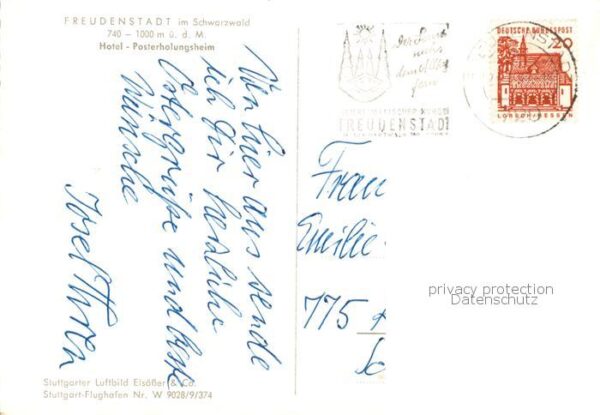 FREUDENSTADT im Schwarzwald
740 – 1000 m ü. d. M.
Hotel - Posterholungsheim
Von hier aus sende
ich Dir herzliche
Ostergrüße und beste
Wünsche
Josef
Der Post
FREUDENSTADT
DEUTSCHE BUNDESPOST
20
LORSCH/HESSEN
Frau
Emilie
775
privacy protection
Datenschutz
Stuttgarter Luftbild Elsäßer & Co.
Stuttgart-Flughafen Nr. W 9028/9/374